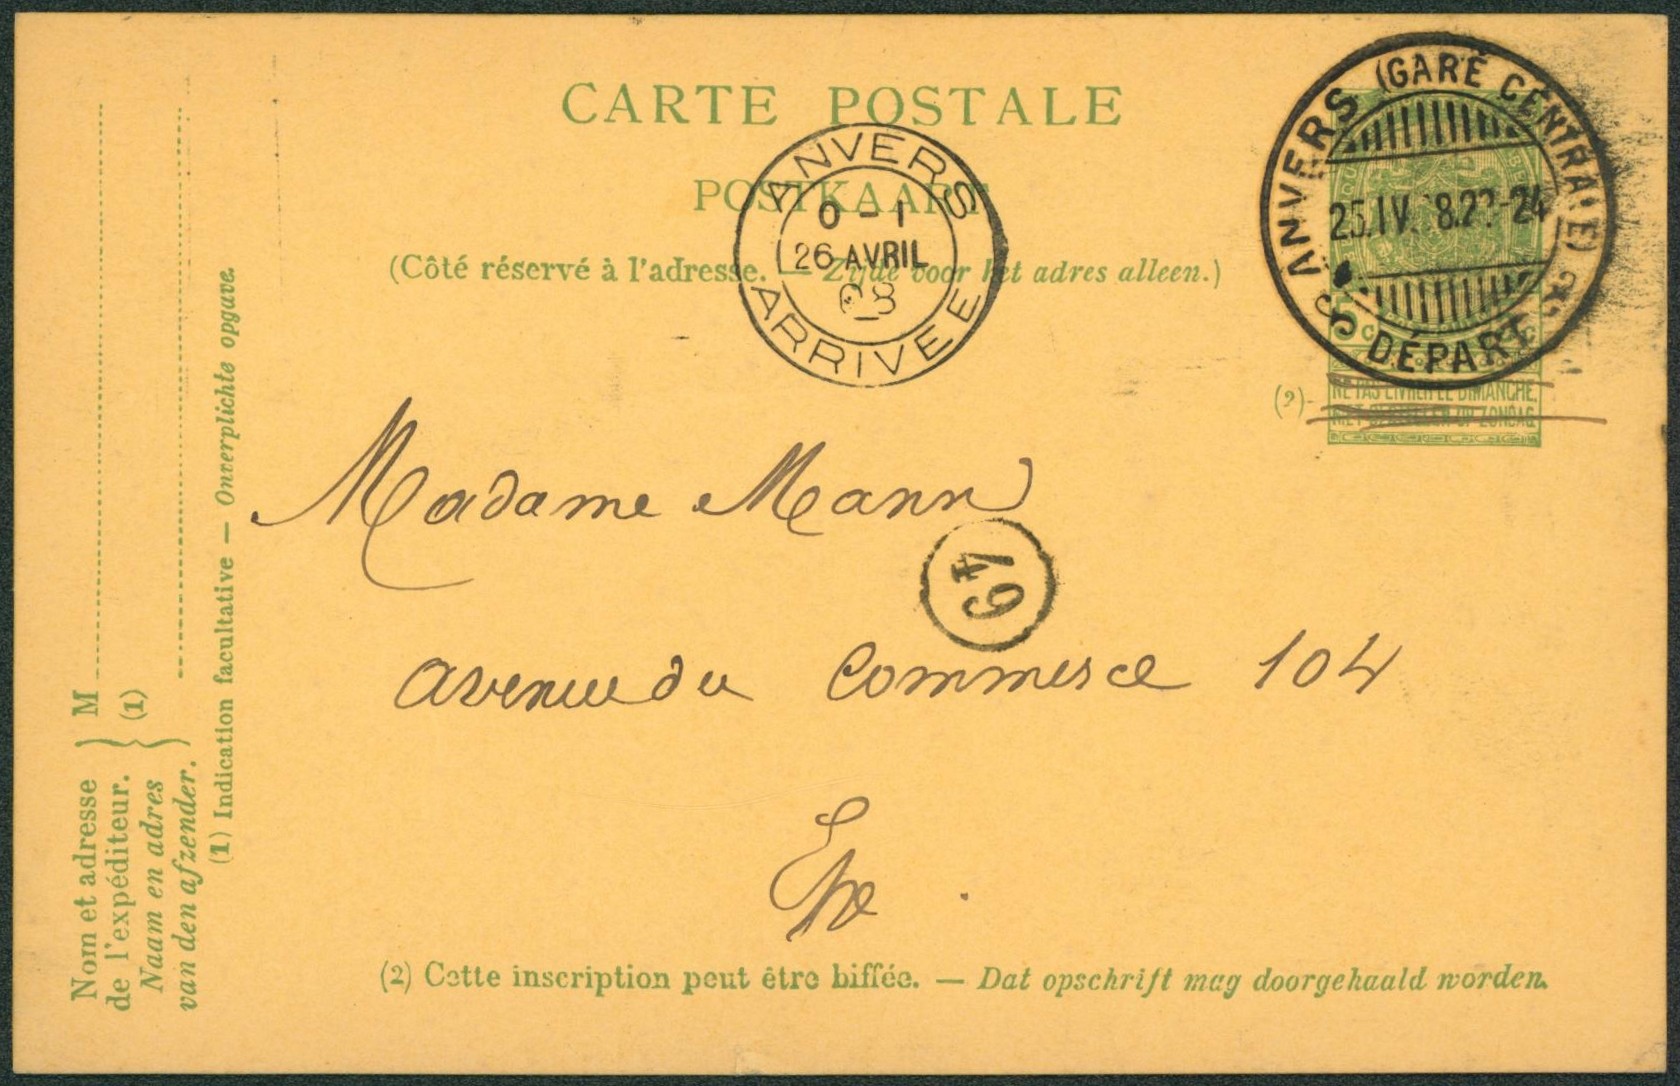 CARTE POSTALE
POSTKAART
(Côté réservé à l'adresse. — Zijde voor het adres alleen.)
ANVERS
0 - 1
26 AVRIL
08
ARRIVEE
ANVERS (GARE CENTRALE)
25.IV. 8.22-24
DÉPART
5 c
(2)
NE PAS LIVRER LE DIMANCHE.
NIET BESTELLEN OP ZONDAG.
Madame Mann
49
avenue du Commerce 104
(2) Cette inscription peut être biffée. — Dat opschrift mag doorgehaald worden.
Nom et adresse
de l'expéditeur.
Naam en adres
van den afzender.
(1)
M
(1) Indication facultative — Onverplichte opgave.